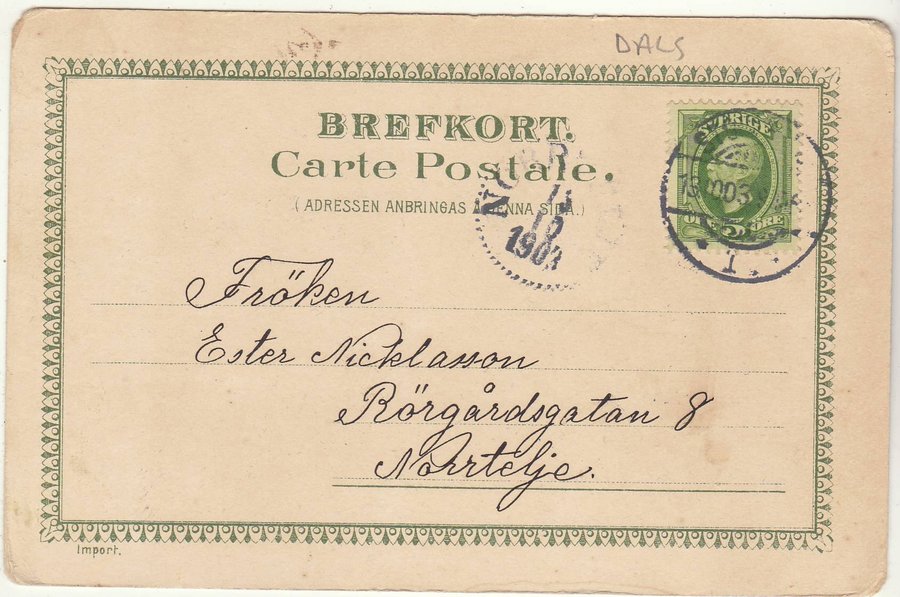 DALS
BREFKORT.
Carte Postale.
(ADRESSEN ANBRINGAS Å DENNA SIDA.)
SVERIGE
ÖRE
1903
Fröken
Ester Nicklasson
Rörgårdsgatan 8
Norrtelje.
Import.